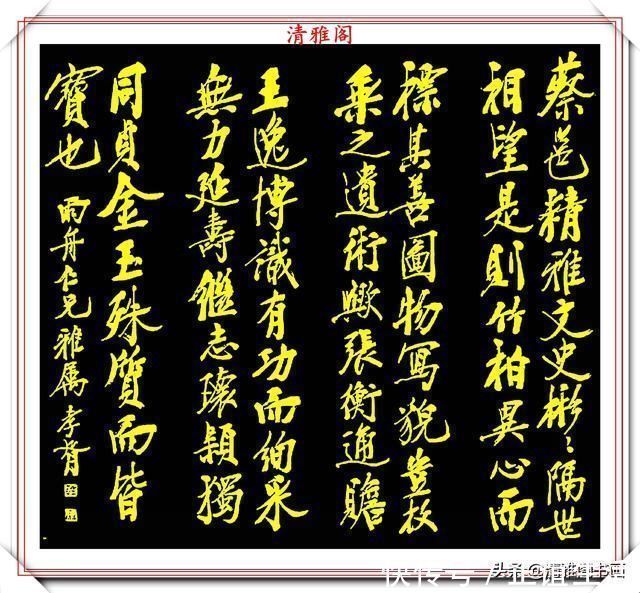 清雅阁
蔡邕精雅文史彬〻隔世
相望是則竹柏異心而
標其善圖物寫貌豈枚
乘之遺術歟張衡通贍
王逸博識有功而絢采
無力延壽繼志瓌穎獨
同貞金玉殊質而皆
寶也 雨舟仁兄雅属 孝胥
头条 @清雅阁书画
快传号 /